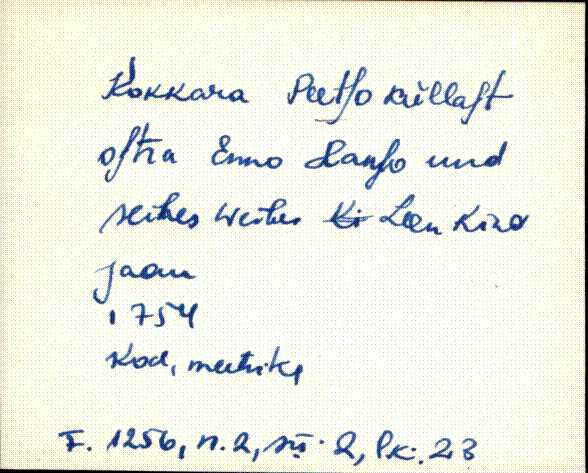 Kokkara Peetso küllast
ostra Enno Hanso und
seines weibes Leen Kind
Jaan
1754
Kod, meetrika
F. 1256, n. 2, sü. 2, lk. 23